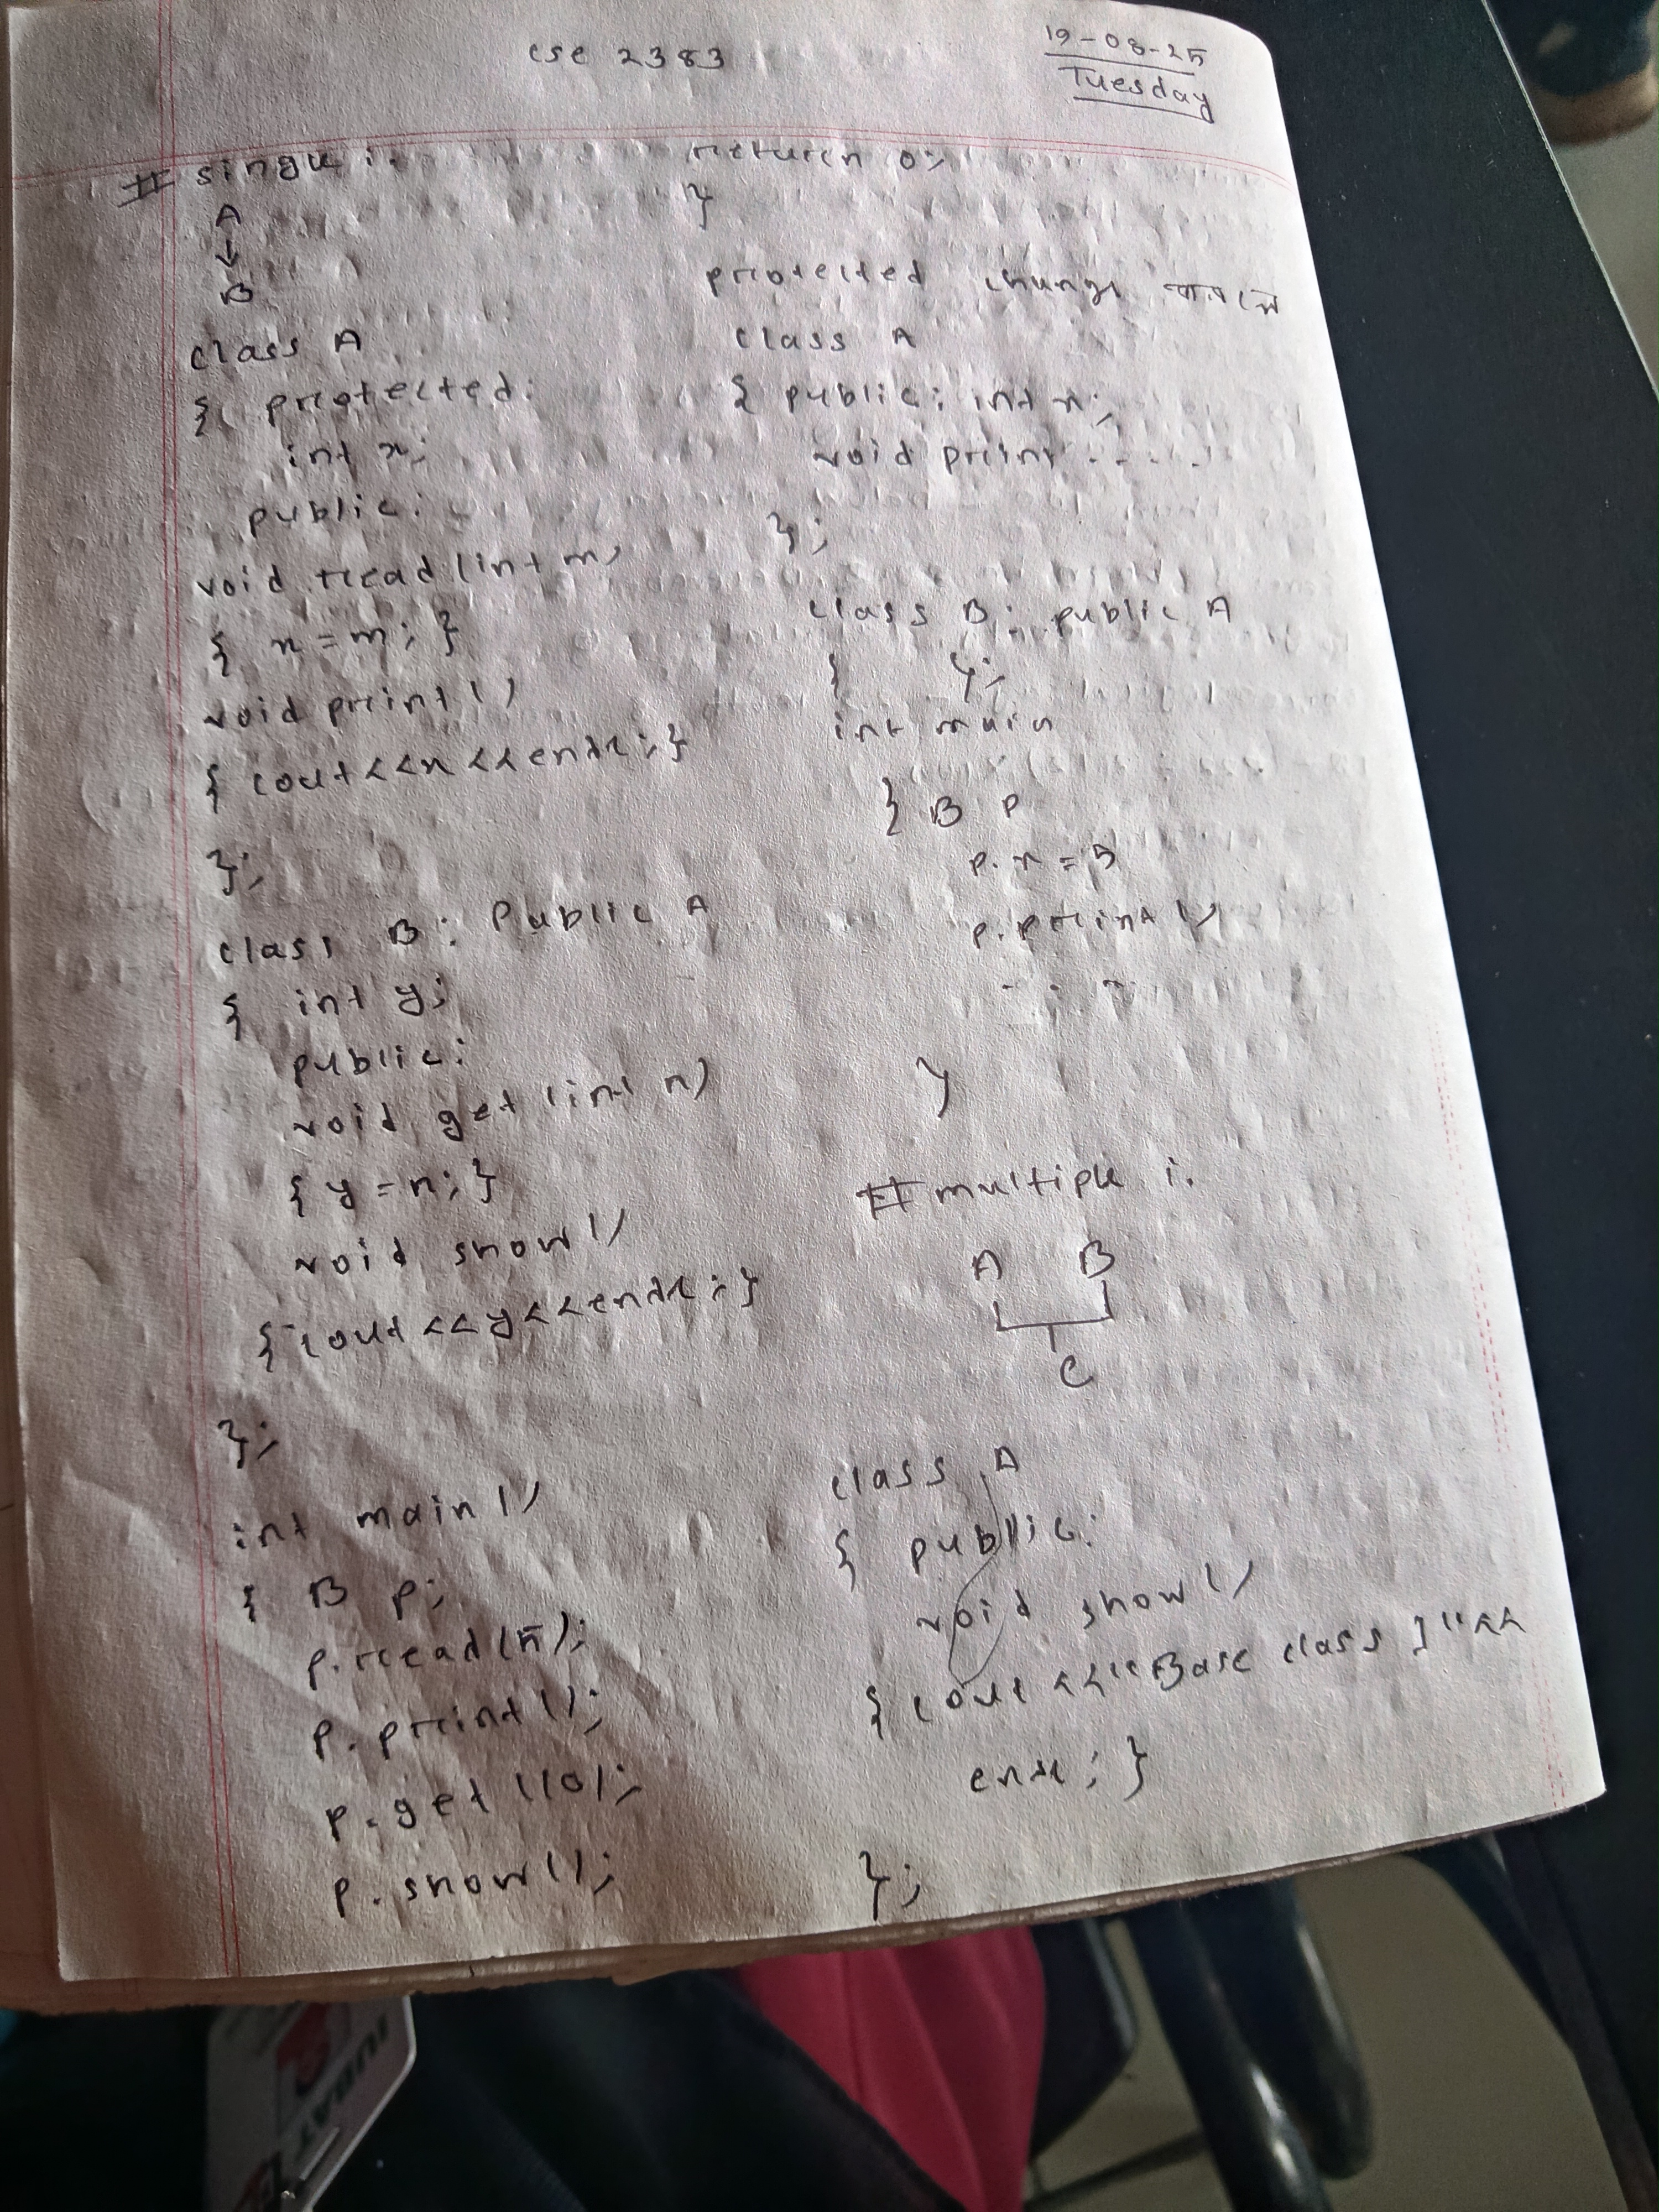 cse 2383
19-08-25
Tuesday
# single i.
A
↓
B
class A
{ protected:
int x;
public:
void read (int m)
{ x = m; }
void print ()
{ cout<<x<<endl; }
};
class B : Public A
{ int y;
public:
void get (int n)
{ y = n; }
void show ()
{ cout<<y<<endl; }
};
int main ()
{ B p;
p.read(5);
p.print ();
p.get (10);
p.show();
return 0;
}
protected change
class A
{ public: int x;
void print .....
};
class B: public A
{ };
int main
{ B p
p.x = 5
p.print ()
}
# multiple i.
A B
C
class A
{ public:
void show ()
{ cout <<"Base class 1"<<
endl; }
};
IUBAT